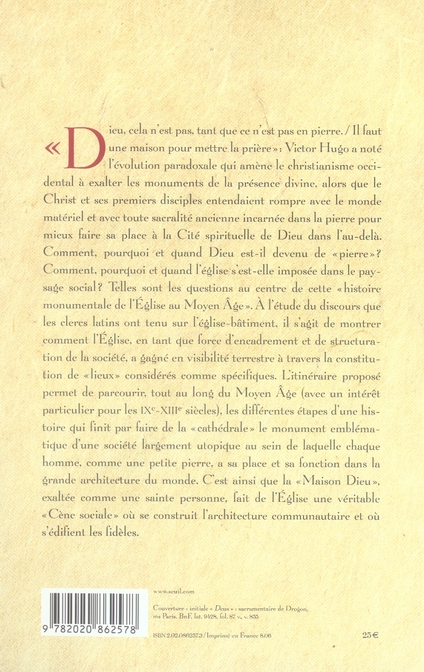 « Dieu, cela n'est pas, tant que ce n'est pas en pierre. / Il faut
une maison pour mettre la prière » : Victor Hugo a noté
l'évolution paradoxale qui amène le christianisme occi-
dental à exalter les monuments de la présence divine, alors que le
Christ et ses premiers disciples entendaient rompre avec le monde
matériel et avec toute sacralité ancienne incarnée dans la pierre pour
mieux faire sa place à la Cité spirituelle de Dieu dans l'au-delà.
Comment, pourquoi et quand Dieu est-il devenu de « pierre » ?
Comment, pourquoi et quand l'église s'est-elle imposée dans le pay-
sage social ? Telles sont les questions au centre de cette « histoire
monumentale de l'Église au Moyen Âge ». À l'étude du discours que
les clercs latins ont tenu sur l'église-bâtiment, il s'agit de montrer
comment l'Église, en tant que force d'encadrement et de structura-
tion de la société, a gagné en visibilité terrestre à travers la constitu-
tion de « lieux » considérés comme spécifiques. L'itinéraire proposé
permet de parcourir, tout au long du Moyen Âge (avec un intérêt
particulier pour les IXe-XIIIe siècles), les différentes étapes d'une his-
toire qui finit par faire de la « cathédrale » le monument embléma-
tique d'une société largement utopique au sein de laquelle chaque
homme, comme une petite pierre, a sa place et sa fonction dans la
grande architecture du monde. C'est ainsi que la « Maison Dieu »,
exaltée comme une sainte personne, fait de l'Église une véritable
« Cène sociale » où se construit l'architecture communautaire et où
s'édifient les fidèles.
www.seuil.com
Couverture : initiale « Deus » - sacramentaire de Drogon,
ms Paris, BnF, lat. 9428, fol. 87 v., v. 855
ISBN 2.02.086257.3 / Imprimé en France 8.06
25 €
9 782020 862578